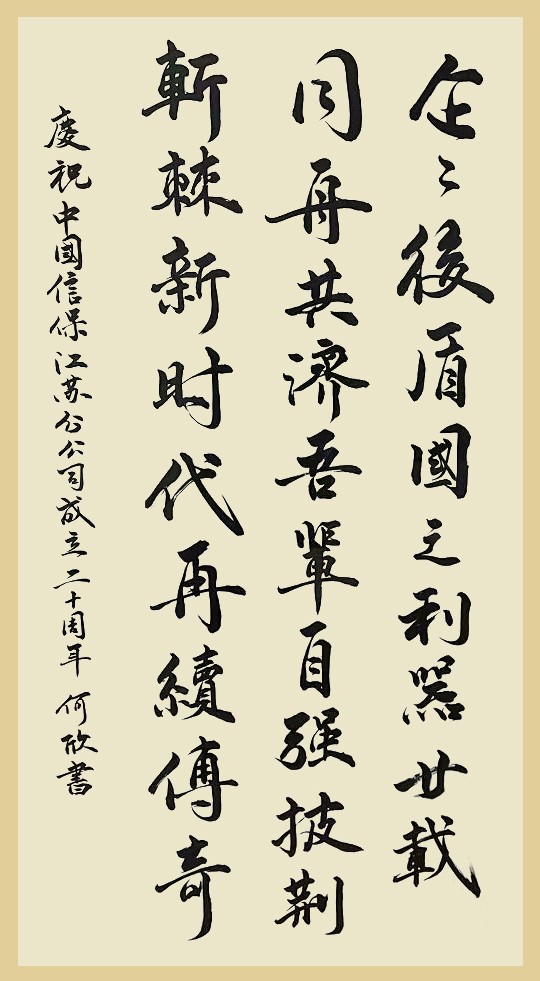 企〻後盾國之利器廿載
同舟共濟吾輩自强披荆
斬棘新时代再續傳奇
慶祝中国信保江苏分公司成立二十周年 何欣書